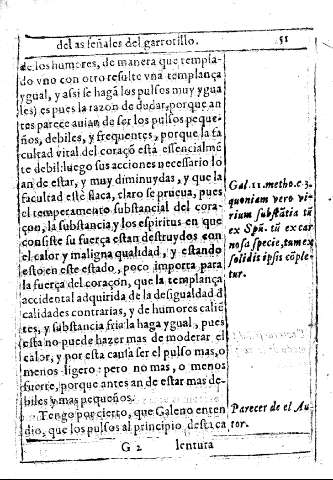 del as señales del garrotillo. 51
de los humores, de manera que templa-
do vno con otro resulte vna templança
ygual, y assi se hagã los pulsos muy ygua
les) es pues la razon de dudar, porque an
tes parece auian de ser los pulsos peque-
ños, debiles, y frequentes, porque la fa
cultad vital del coraçõ está essencialmẽ
te debil: luego sus acciones necessario lo
an de estar, y muy diminuydas, y que la
facultad estè flaca, claro se prueua, pues
el temperamento substancial del cora-
çon, la substancia y los espiritus en que
consiste su fuerça estan destruydos con
el calor y maligna qualidad, y estando
esto en este estado, poco importa para
la fuerça del coraçon, que la templança
accidental adquirida de la desigualdad d
calidades contrarias, y de humores caliẽ
tes, y substancia fria la haga ygual, pues
esta no puede hazer mas de moderar el
calor, y por esta causa ser el pulso mas, o
menos ligero: pero no mas, o menos
fuerte, porque antes an de estar mas de-
biles y mas pequeños.
Tengo por cierto, que Galeno enten
dio, que los pulsos al principio desta ca
G 2 lentura
Gal. 11. metho. c. 3.
quoniam vero vi-
rium substãtia tũ
ex Spũ. tũ ex car
nosa specie, tum ex
solidis ipsis cõple-
tur.
Parecer de el Au-
tor.